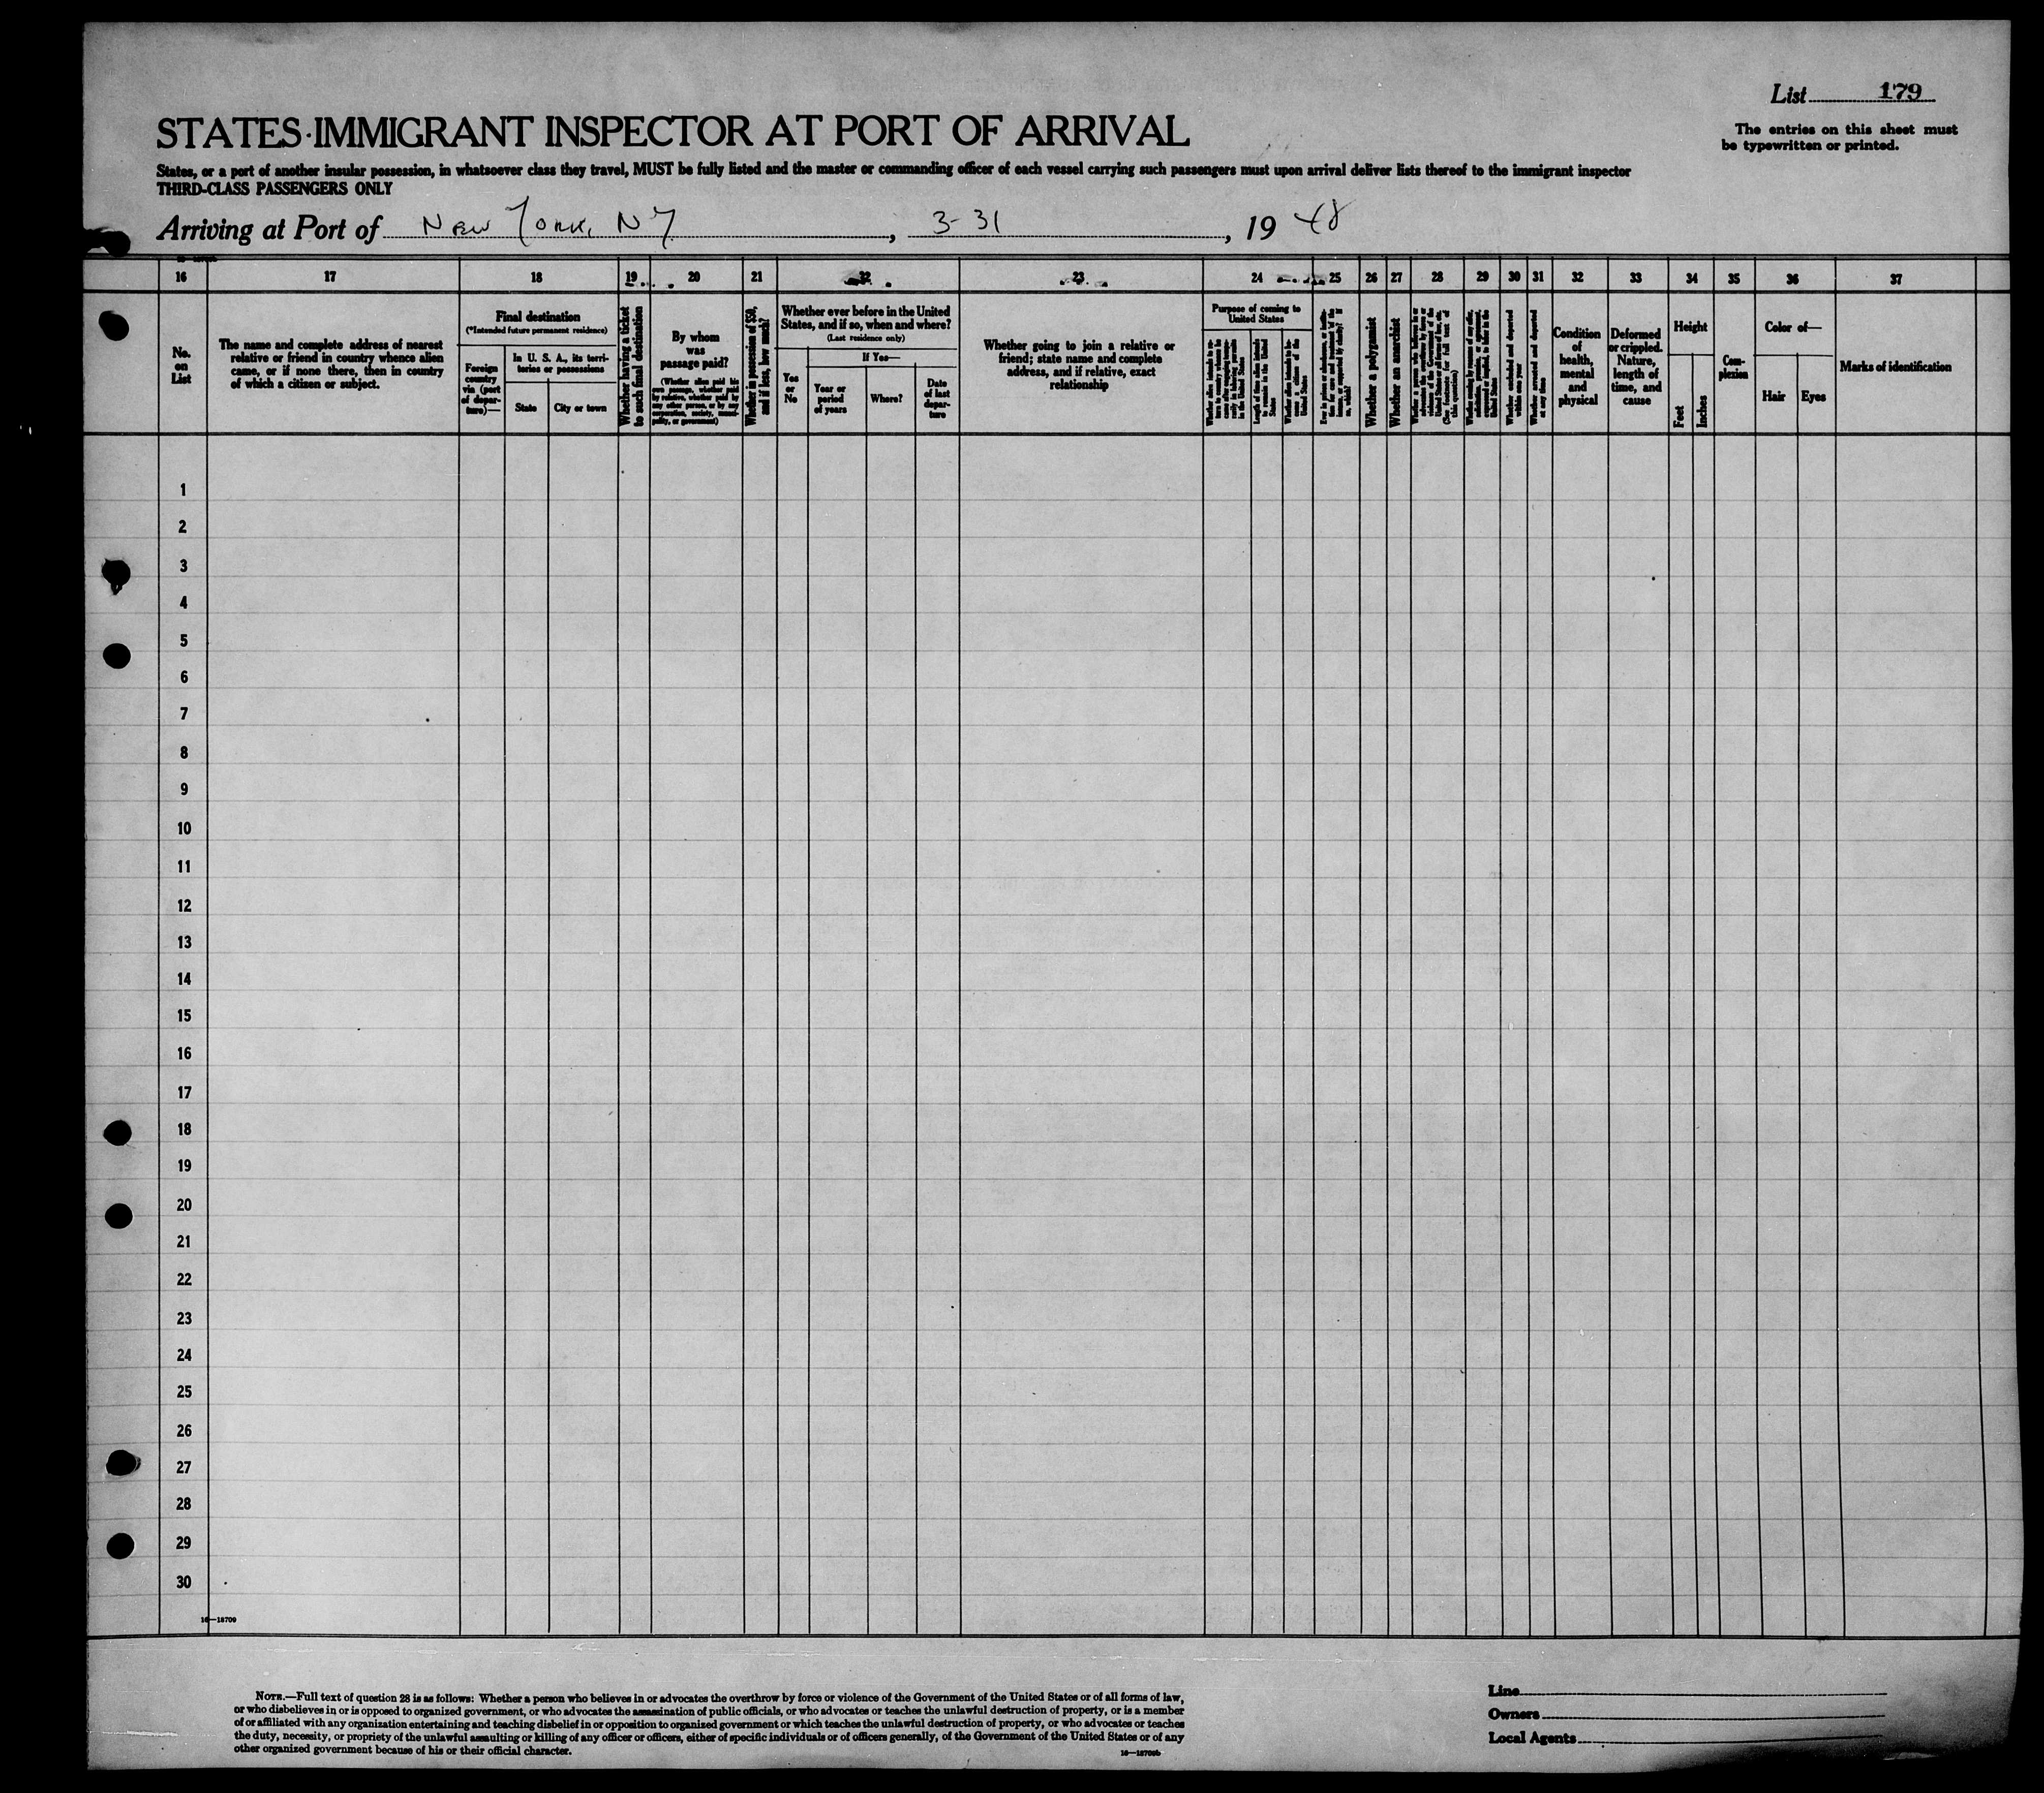 List 179
The entries on this sheet must
be typewritten or printed.
STATES·IMMIGRANT INSPECTOR AT PORT OF ARRIVAL
States, or a port of another insular possession, in whatsoever class they travel, MUST be fully listed and the master or commanding officer of each vessel carrying such passengers must upon arrival deliver lists thereof to the immigrant inspector
THIRD-CLASS PASSENGERS ONLY
Arriving at Port of New York, NY, 3-31, 19 48
16 17 18 19 20 21 22 23 24 25 26 27 28 29 30 31 32 33 34 35 36 37
No.
on
List
The name and complete address of nearest
relative or friend in country whence alien
came, or if none there, then in country
of which a citizen or subject.
Final destination
(*Intended future permanent residence)
Foreign
country
via (port
of depar-
ture)—
In U. S. A., its terri-
tories or possessions
State
City or town
Whether having a ticket
to such final destination
By whom
was
passage paid?
(Whether alien paid his
own passage, whether paid
by relative, whether paid by
any other person, or by any
corporation, society, munici-
pality, or government)
Whether in possession of $50,
and if less, how much?
Whether ever before in the United
States, and if so, when and where?
(Last residence only)
Yes
or
No
If Yes—
Year or
period
of years
Where?
Date
of last
depar-
ture
Whether going to join a relative or
friend; state name and complete
address, and if relative, exact
relationship
Purpose of coming to
United States
Length of time alien intends
to remain in the United
States
Whether alien intends to be-
come a citizen of the
United States
Whether a polygamist
Whether an anarchist
(See footnote for full text of
this question)
Whether excluded and deported
within one year
Whether arrested and deported
at any time
Condition
of
health,
mental
and
physical
Deformed
or crippled.
Nature,
length of
time, and
cause
Height
Feet
Inches
Com-
plexion
Color of—
Hair
Eyes
Marks of identification
1
2
3
4
5
6
7
8
9
10
11
12
13
14
15
16
17
18
19
20
21
22
23
24
25
26
27
28
29
30
16—18709
NOTE.—Full text of question 28 is as follows: Whether a person who believes in or advocates the overthrow by force or violence of the Government of the United States or of all forms of law,
or who disbelieves in or is opposed to organized government, or who advocates the assassination of public officials, or who advocates or teaches the unlawful destruction of property, or is a member
of or affiliated with any organization entertaining and teaching disbelief in or opposition to organized government or which teaches the unlawful destruction of property, or who advocates or teaches
the duty, necessity, or propriety of the unlawful assaulting or killing of any officer or officers, either of specific individuals or of officers generally, of the Government of the United States or of any
other organized government because of his or their official character.
Line
Owners
Local Agents